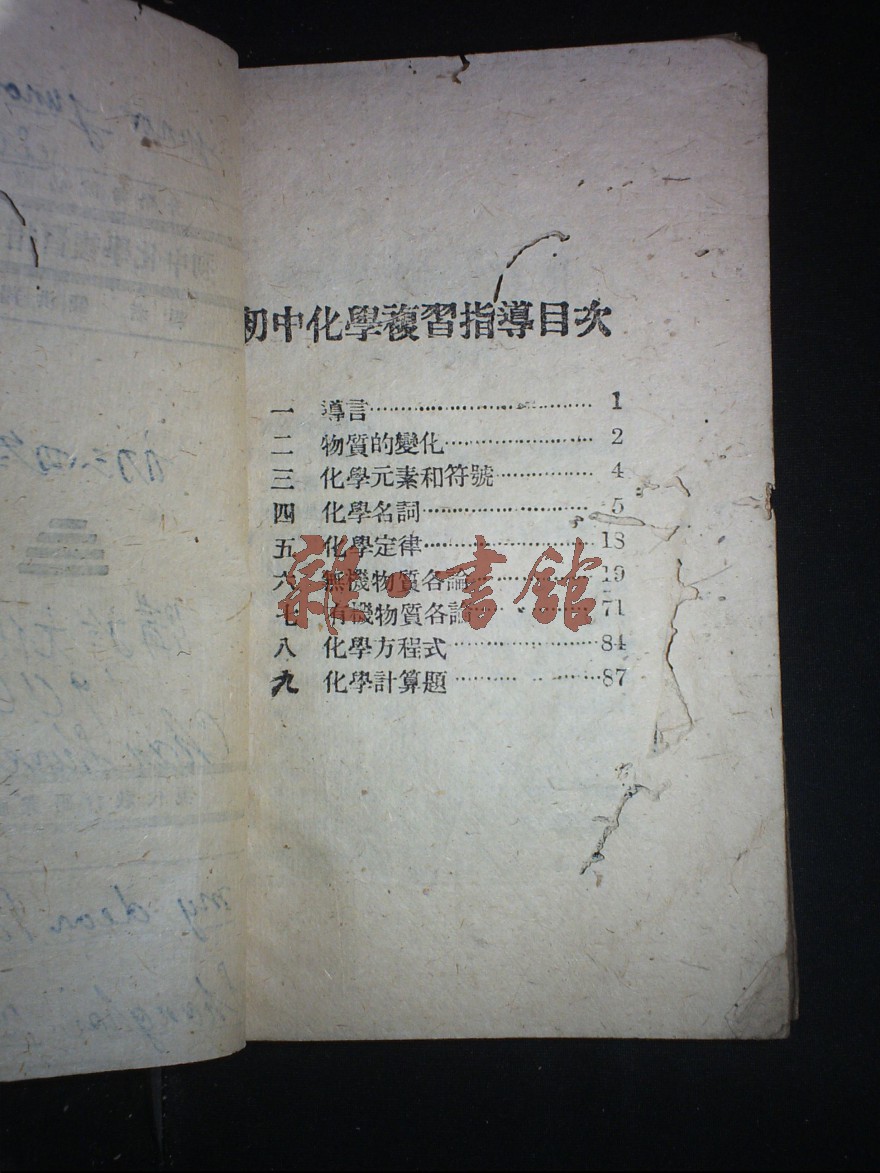 初中化學複習指導目次
一 導言 1
二 物質的變化 2
三 化學元素和符號 4
四 化學名詞 5
五 化學定律 18
六 無機物質各論 19
七 有機物質各論 71
八 化學方程式 84
九 化學計算題 87
雜·書館
my dear